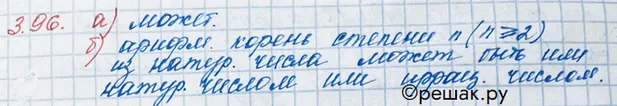 3.96. а) может.
б) арифм. корень степени n (n⩾2)
из натур. числа может быть или
натур. числом или иррац. числом.
©решак.ру